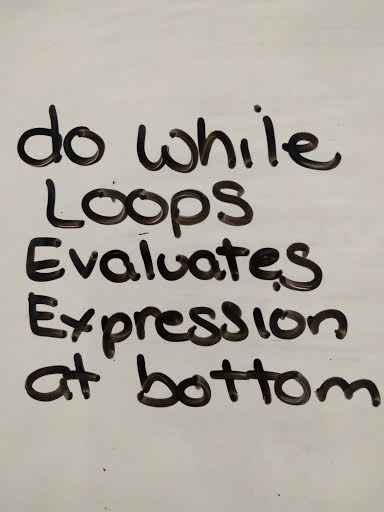 do while
Loops
Evaluates
Expression
at bottom